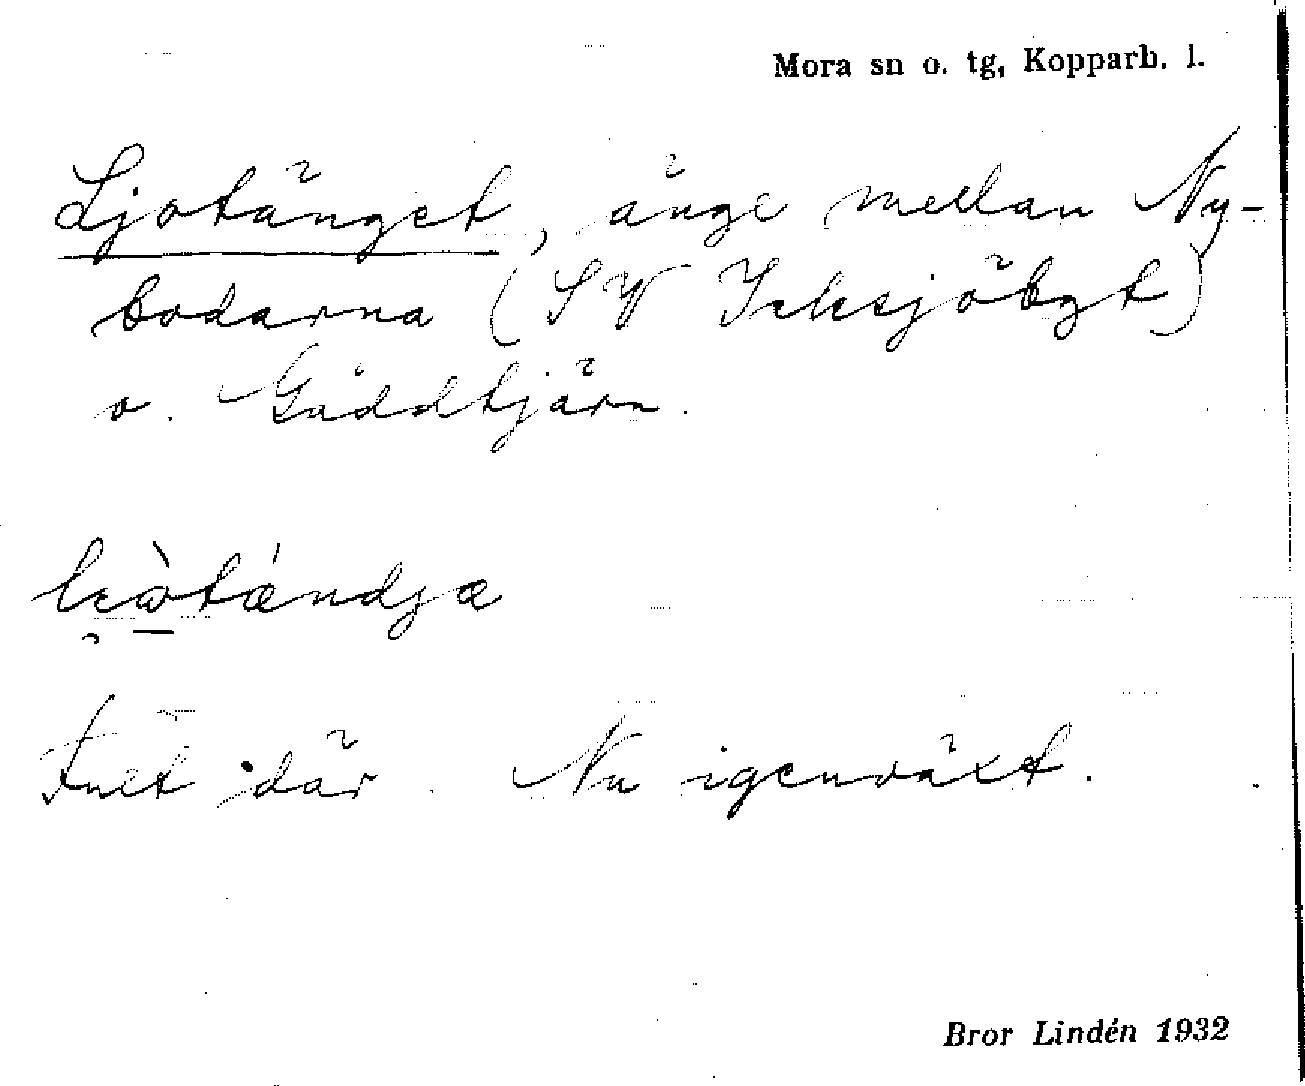 Mora sn o. tg, Kopparb. l.
Ljotänget, änge mellan Ny-
bodarna (SV Icksjöbgt)
o. Gäddtjärn.
leòtǽndjæ
där. Nu igenväxt.
Bror Lindén 1932